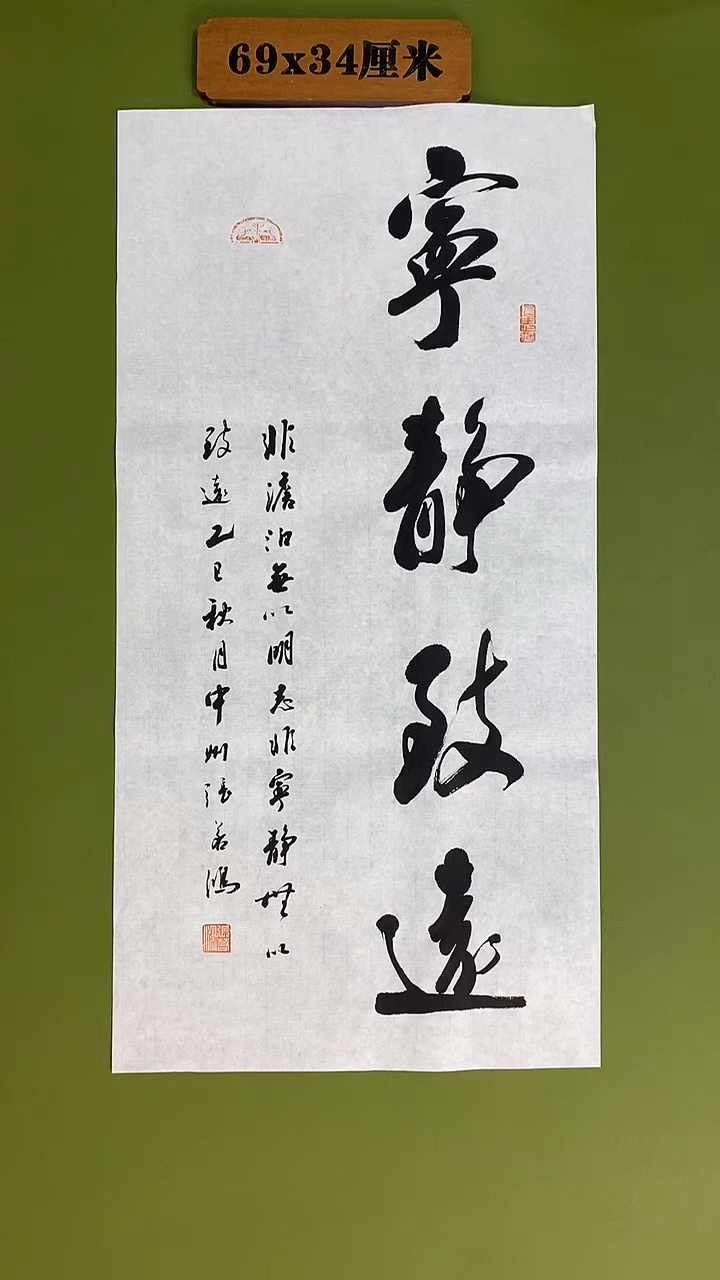 69x34厘米
寧靜致遠
非澹泊無以明志非寧靜無以
致遠乙巳秋月中州張若鴻